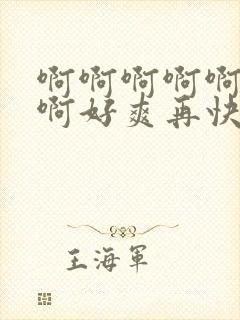 啊啊啊啊啊
啊好爽再快
王海軍